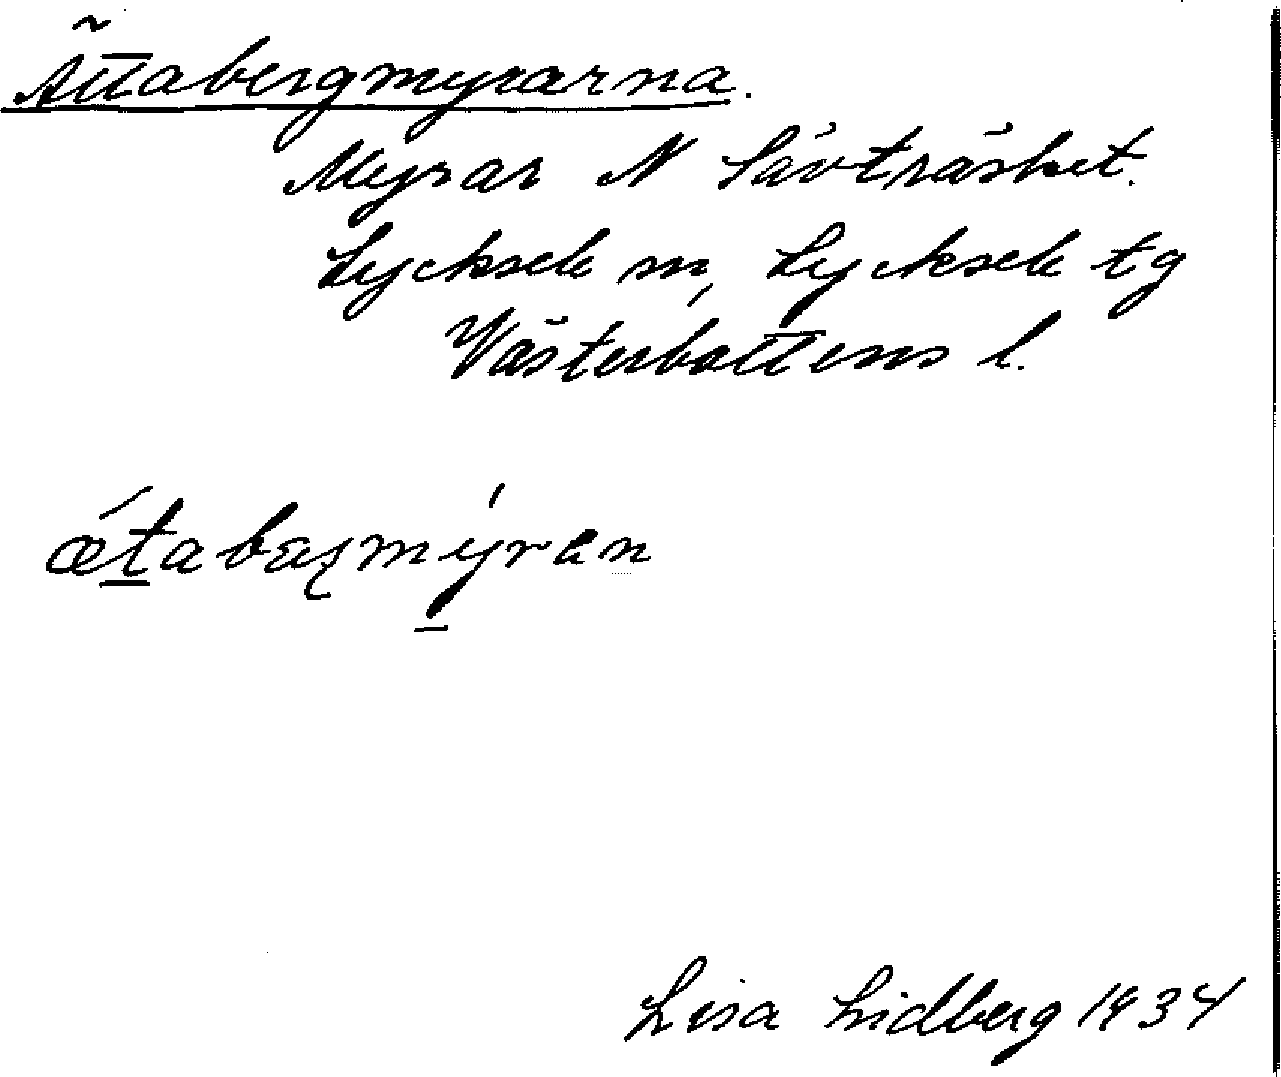 Ättabergmyrarna.
Myrar N Sävträsket.
Lycksele m, Lycksele tg
Västerbottens l.
ǽtabæꞃmýran
Lisa Lidberg 1934